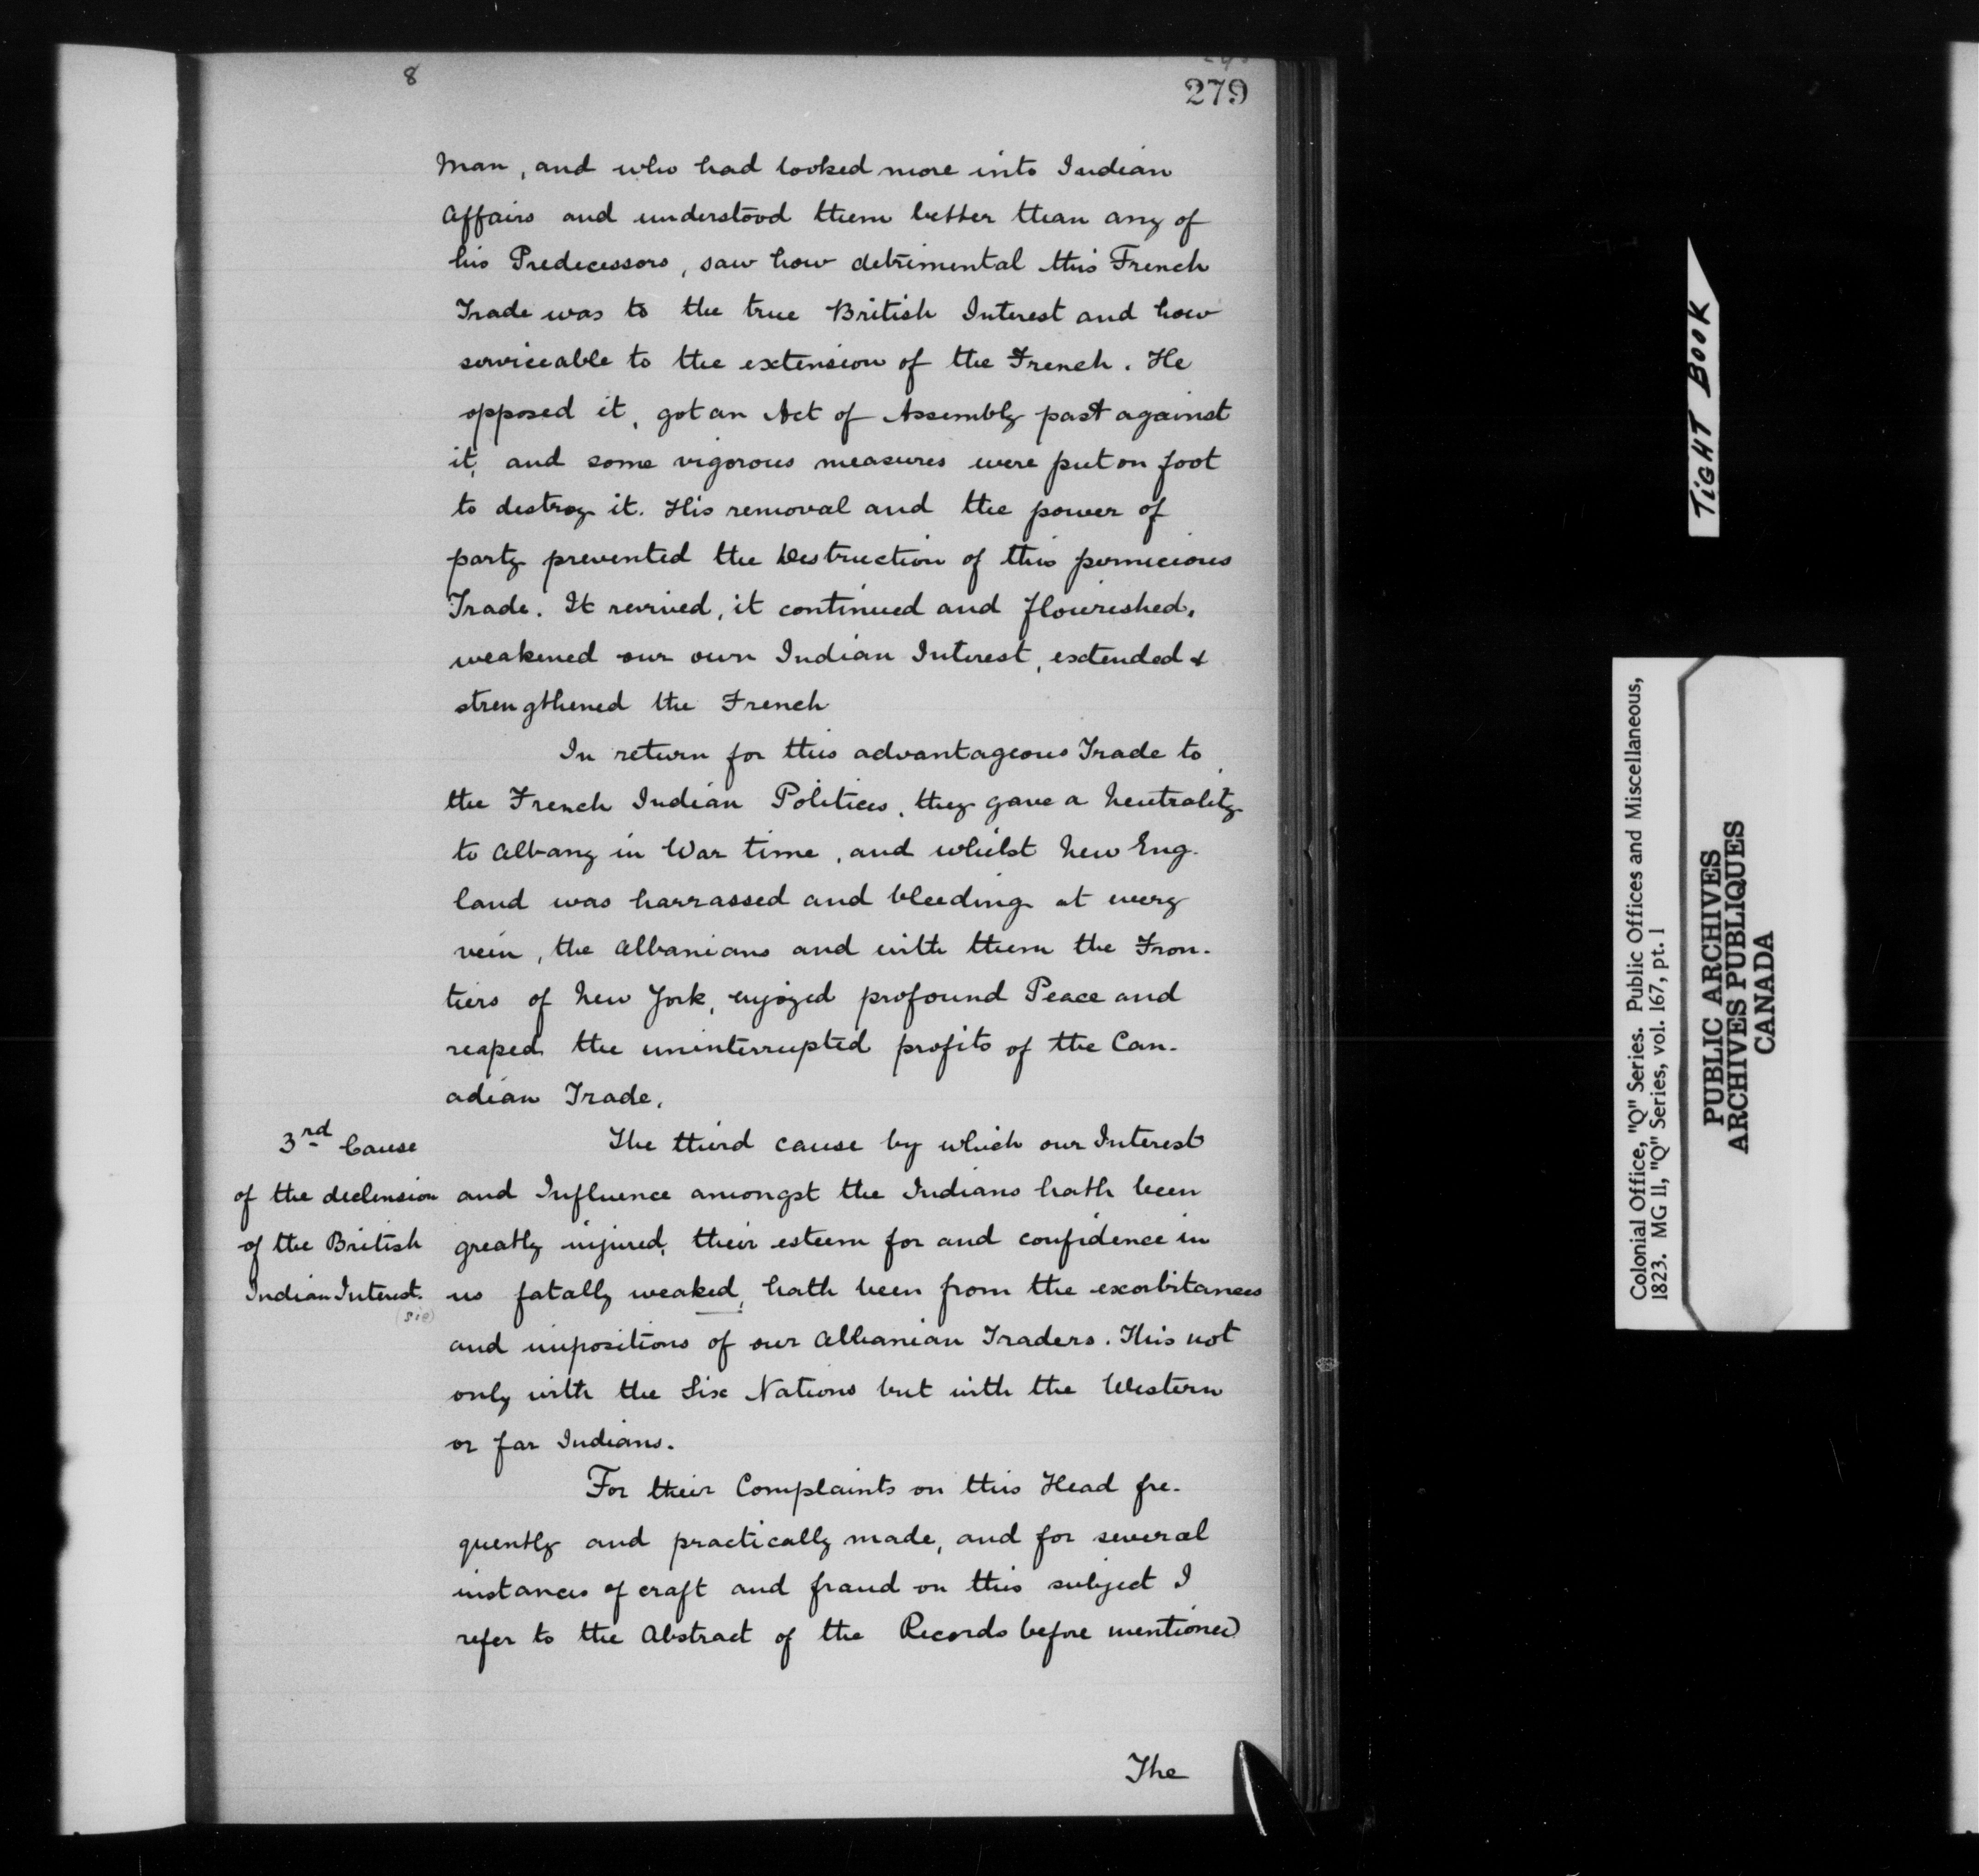 8
279
Man, and who had looked more into Indian
Affairs and understood them better than any of
his Predecessors, saw how detrimental this French
Trade was to the true British Interest and how
serviceable to the extension of the French. He
opposed it, got an Act of Assembly past against
it, and some vigorous measures were put on foot
to destroy it. His removal and the power of
party prevented the Destruction of this pernicious
Trade. It revived, it continued and flourished,
weakened our own Indian Interest, extended &
strengthened the French
In return for this advantageous Trade to
the French Indian Politics, they gave a Neutrality
to Albany in War time, and whilst New Eng-
land was harrassed and bleeding at every
vein, the Albanians and with them the Fron-
tiers of New York, enjoyed profound Peace and
reaped the uninterrupted profits of the Can-
adian Trade.
3rd Cause
of the declension
of the British
Indian Interest.
(sic)
The third cause by which our Interest
and Influence amongst the Indians hath been
greatly injured, their esteem for and confidence in
us fatally weaked, hath been from the exorbitances
and impositions of our Albanian Traders. This not
only with the Six Nations but with the Western
or far Indians.
For their Complaints on this Head fre-
quently and practically made, and for several
instances of craft and fraud on this subject I
refer to the Abstract of the Records before mentioned
The
TIGHT BOOK
Colonial Office, "Q" Series. Public Offices and Miscellaneous,
1823. MG 11, "Q" Series, vol. 167, pt. 1
PUBLIC ARCHIVES
ARCHIVES PUBLIQUES
CANADA